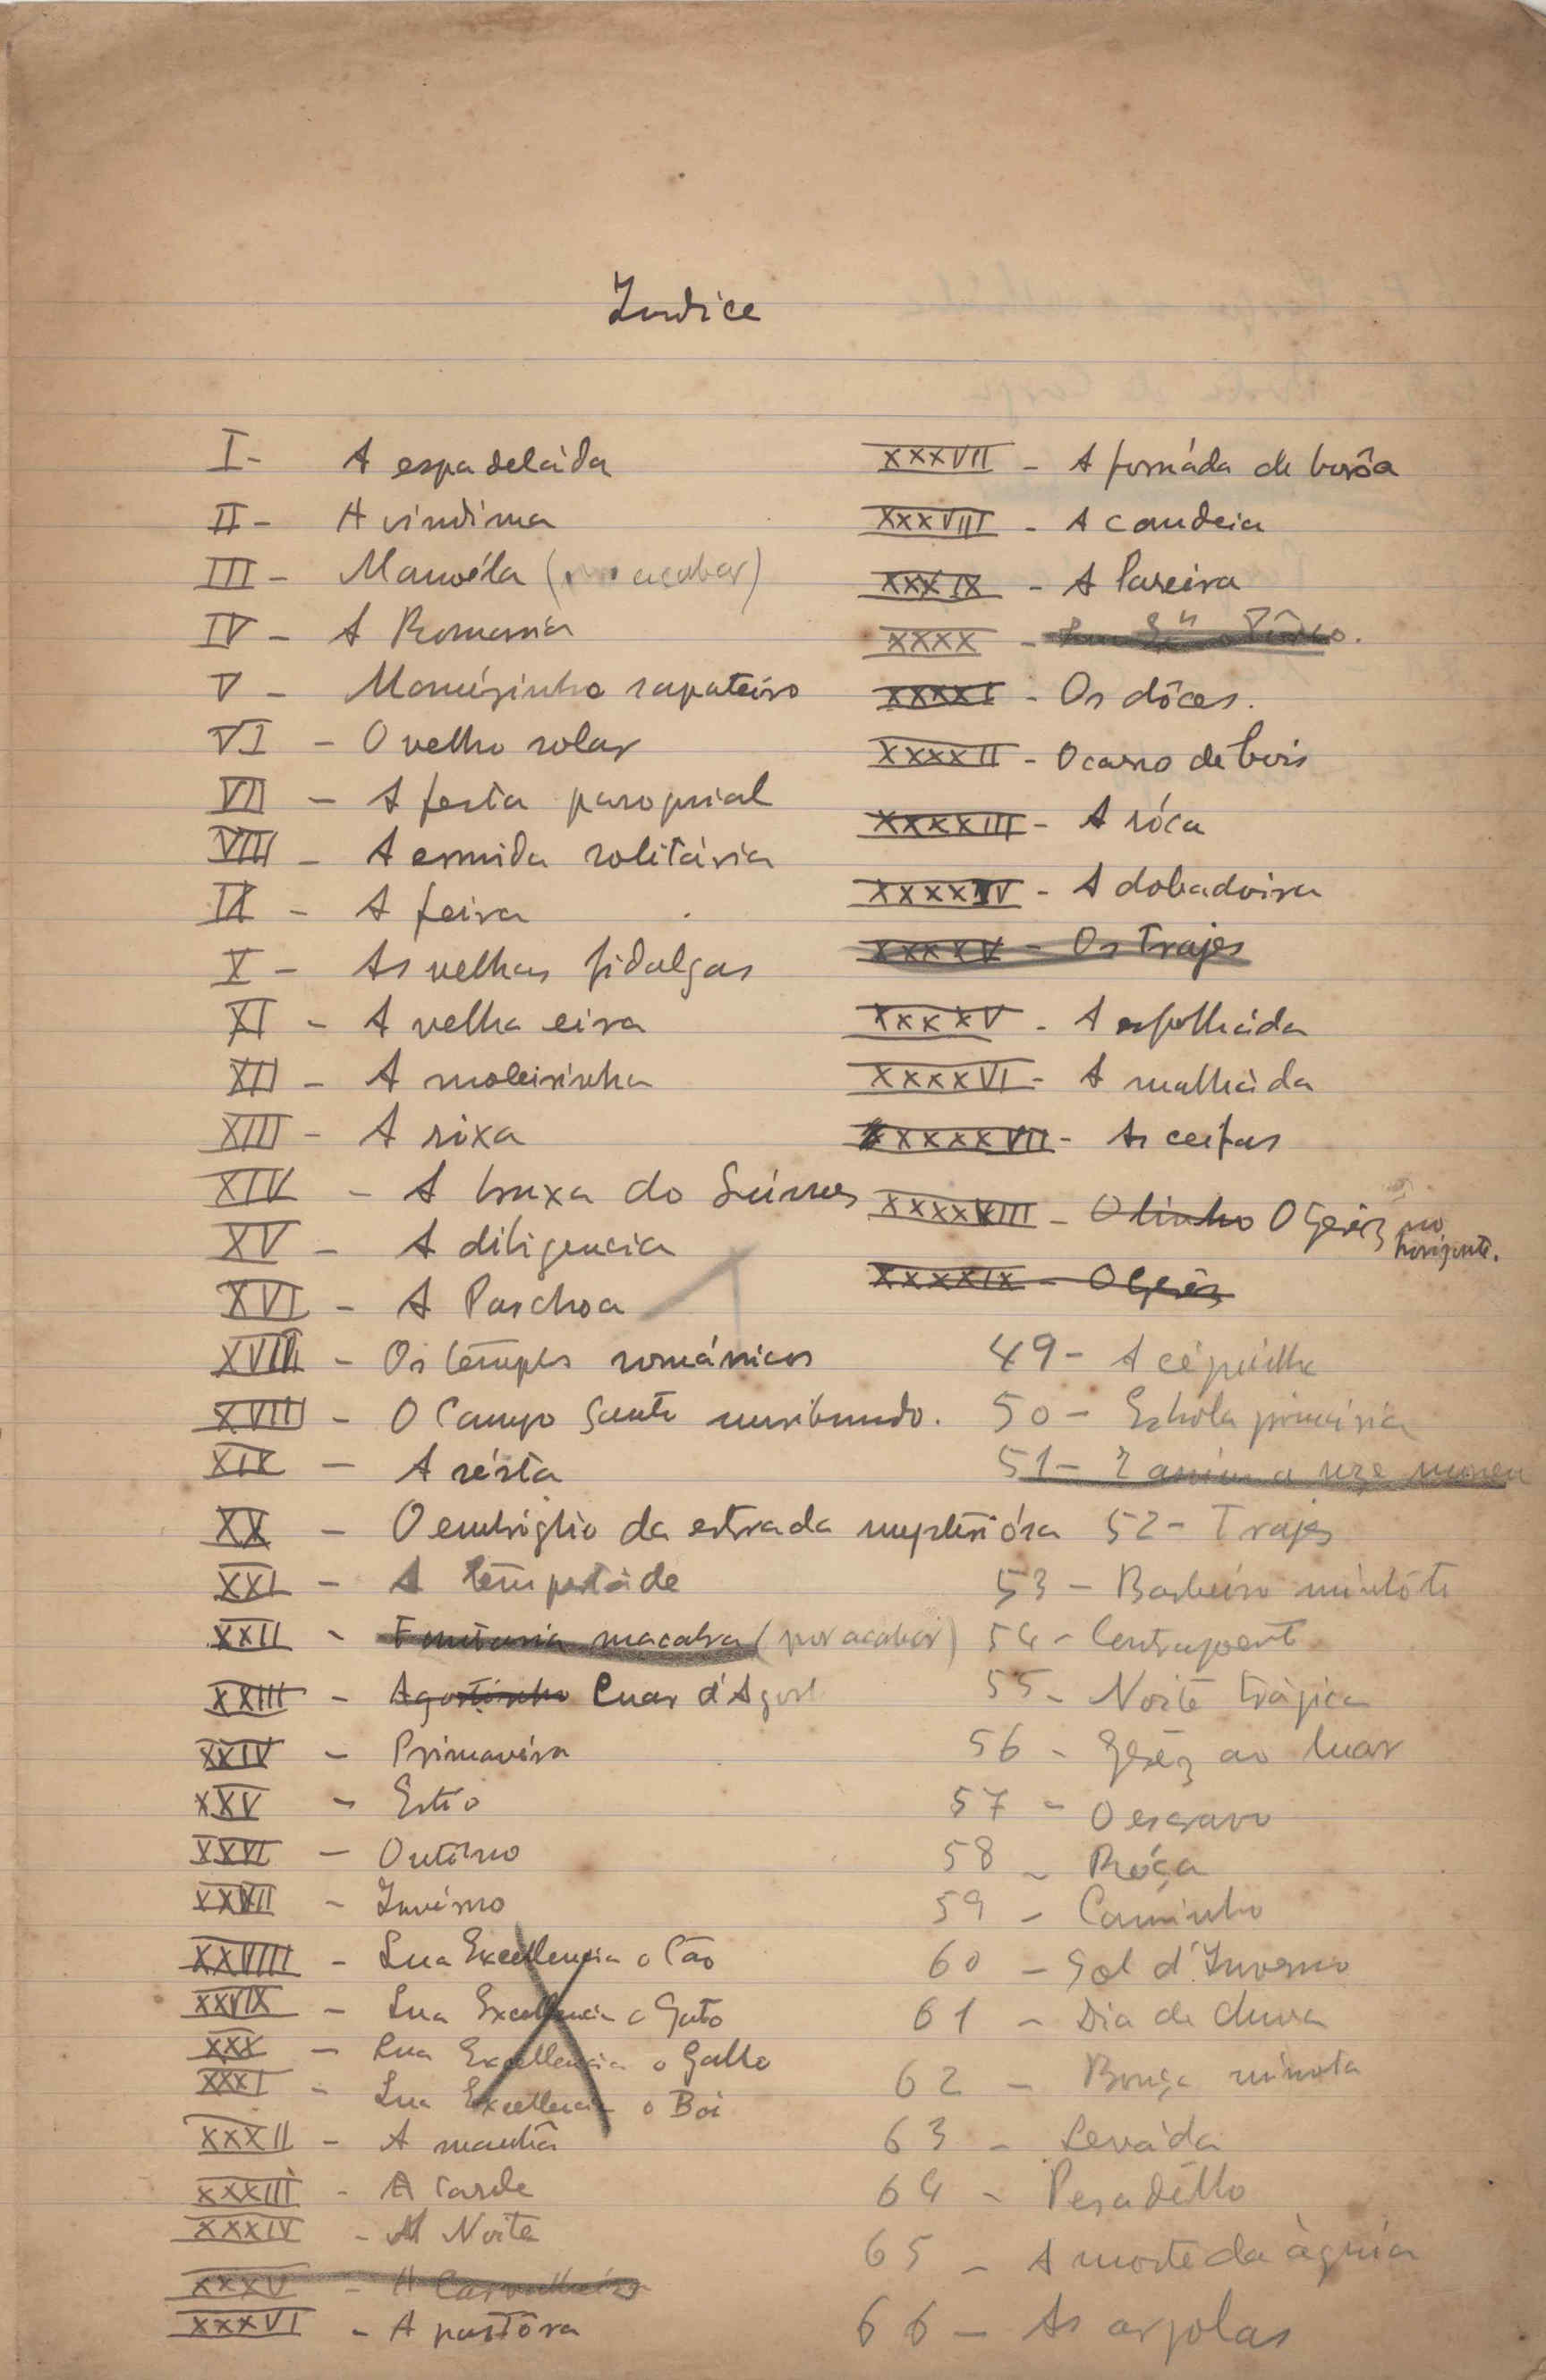 Indice
I - A espadeláda
II - A vindima
III - Manoéla (acabar)
IV - A Romaria
V - Manézinho sapateiro
VI - O velho solar
VII - A festa paroquial
VIII - A ermida solitária
IX - A feira
X - As velhas fidalgas
XI - A velha eira
XII - A moleirinha
XIII - A rixa
XIV - A bruxa do
XV - A diligencia
XVI - A Paschoa
XVII - Os templos românicos
XVIII - O Campo Santo moribundo.
XIX - A sésta
XX - O embróglio da estrada mysteriósa
XXI - A tempestáde
XXII - macabra (por acabar)
XXIII - Agostinho Luar d'Agost
XXIV - Primavéra
XXV - Estio
XXVI - Outôno
XXVII - Invérno
XXVIII - Sua Excellencia o Cão
XXVIX - Sua Excellencia o Gato
XXX - Sua Excellencia o Gallo
XXXI - Sua Excellencia o Boi
XXXII - A manhã
XXXIII - A Tarde
XXXIV - A Noite
XXXV - A
XXXVI - A pastôra
XXXVII - A fornáda de borôa
XXXVIII - A candeia
XXXIX - A lareira
XXXX -
XXXXI - Os dôces.
XXXXII - O carro de bois
XXXXIII - A róca
XXXXIV - A dobadoira
XXXXV - Os Trajes
XXXXV - A esfolháda
XXXXVI - A malháda
XXXXVII - As ceifas
XXXXVIII - O linho O Geréz no
horizonte.
XXXXIX - O Geréz
49 - A
50 - Eschola primária
51 - E assim a
52 - Trajes
53 - Barbeiro minhôto
54 -
55 - Noite trágica
56 - Geréz ao luar
57 - O escravo
58 - Róça
59 - Caminho
60 - Sol d'Inverno
61 - Dia de chuva
62 -
63 - Leváda
64 - Pesadêllo
65 - A morte da àguia
66 - As argolas